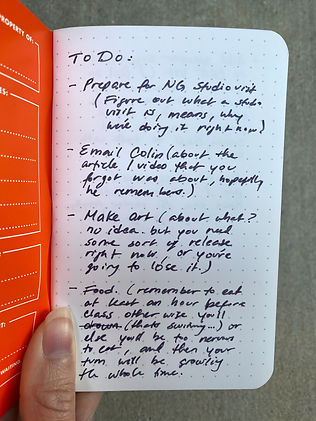 PROPERTY OF:
ES:
TO DO:
- Prepare for NG Studio visit
(Figure out what a studio
visit is, means, why
we're doing it right now)
- Email Colin (about the
article / video that you
forgot was about, hopefully
he remembers.)
- Make art (about what?
no idea. but you need
some sort of release
right now, or you're
going to lose it.)
- Food. (remember to eat
at least an hour before
class other wise you'll
drown (thats swimming...) or
else you'll be too nervous
to eat, and then your
tum will be growling
the whole time.
WAITING